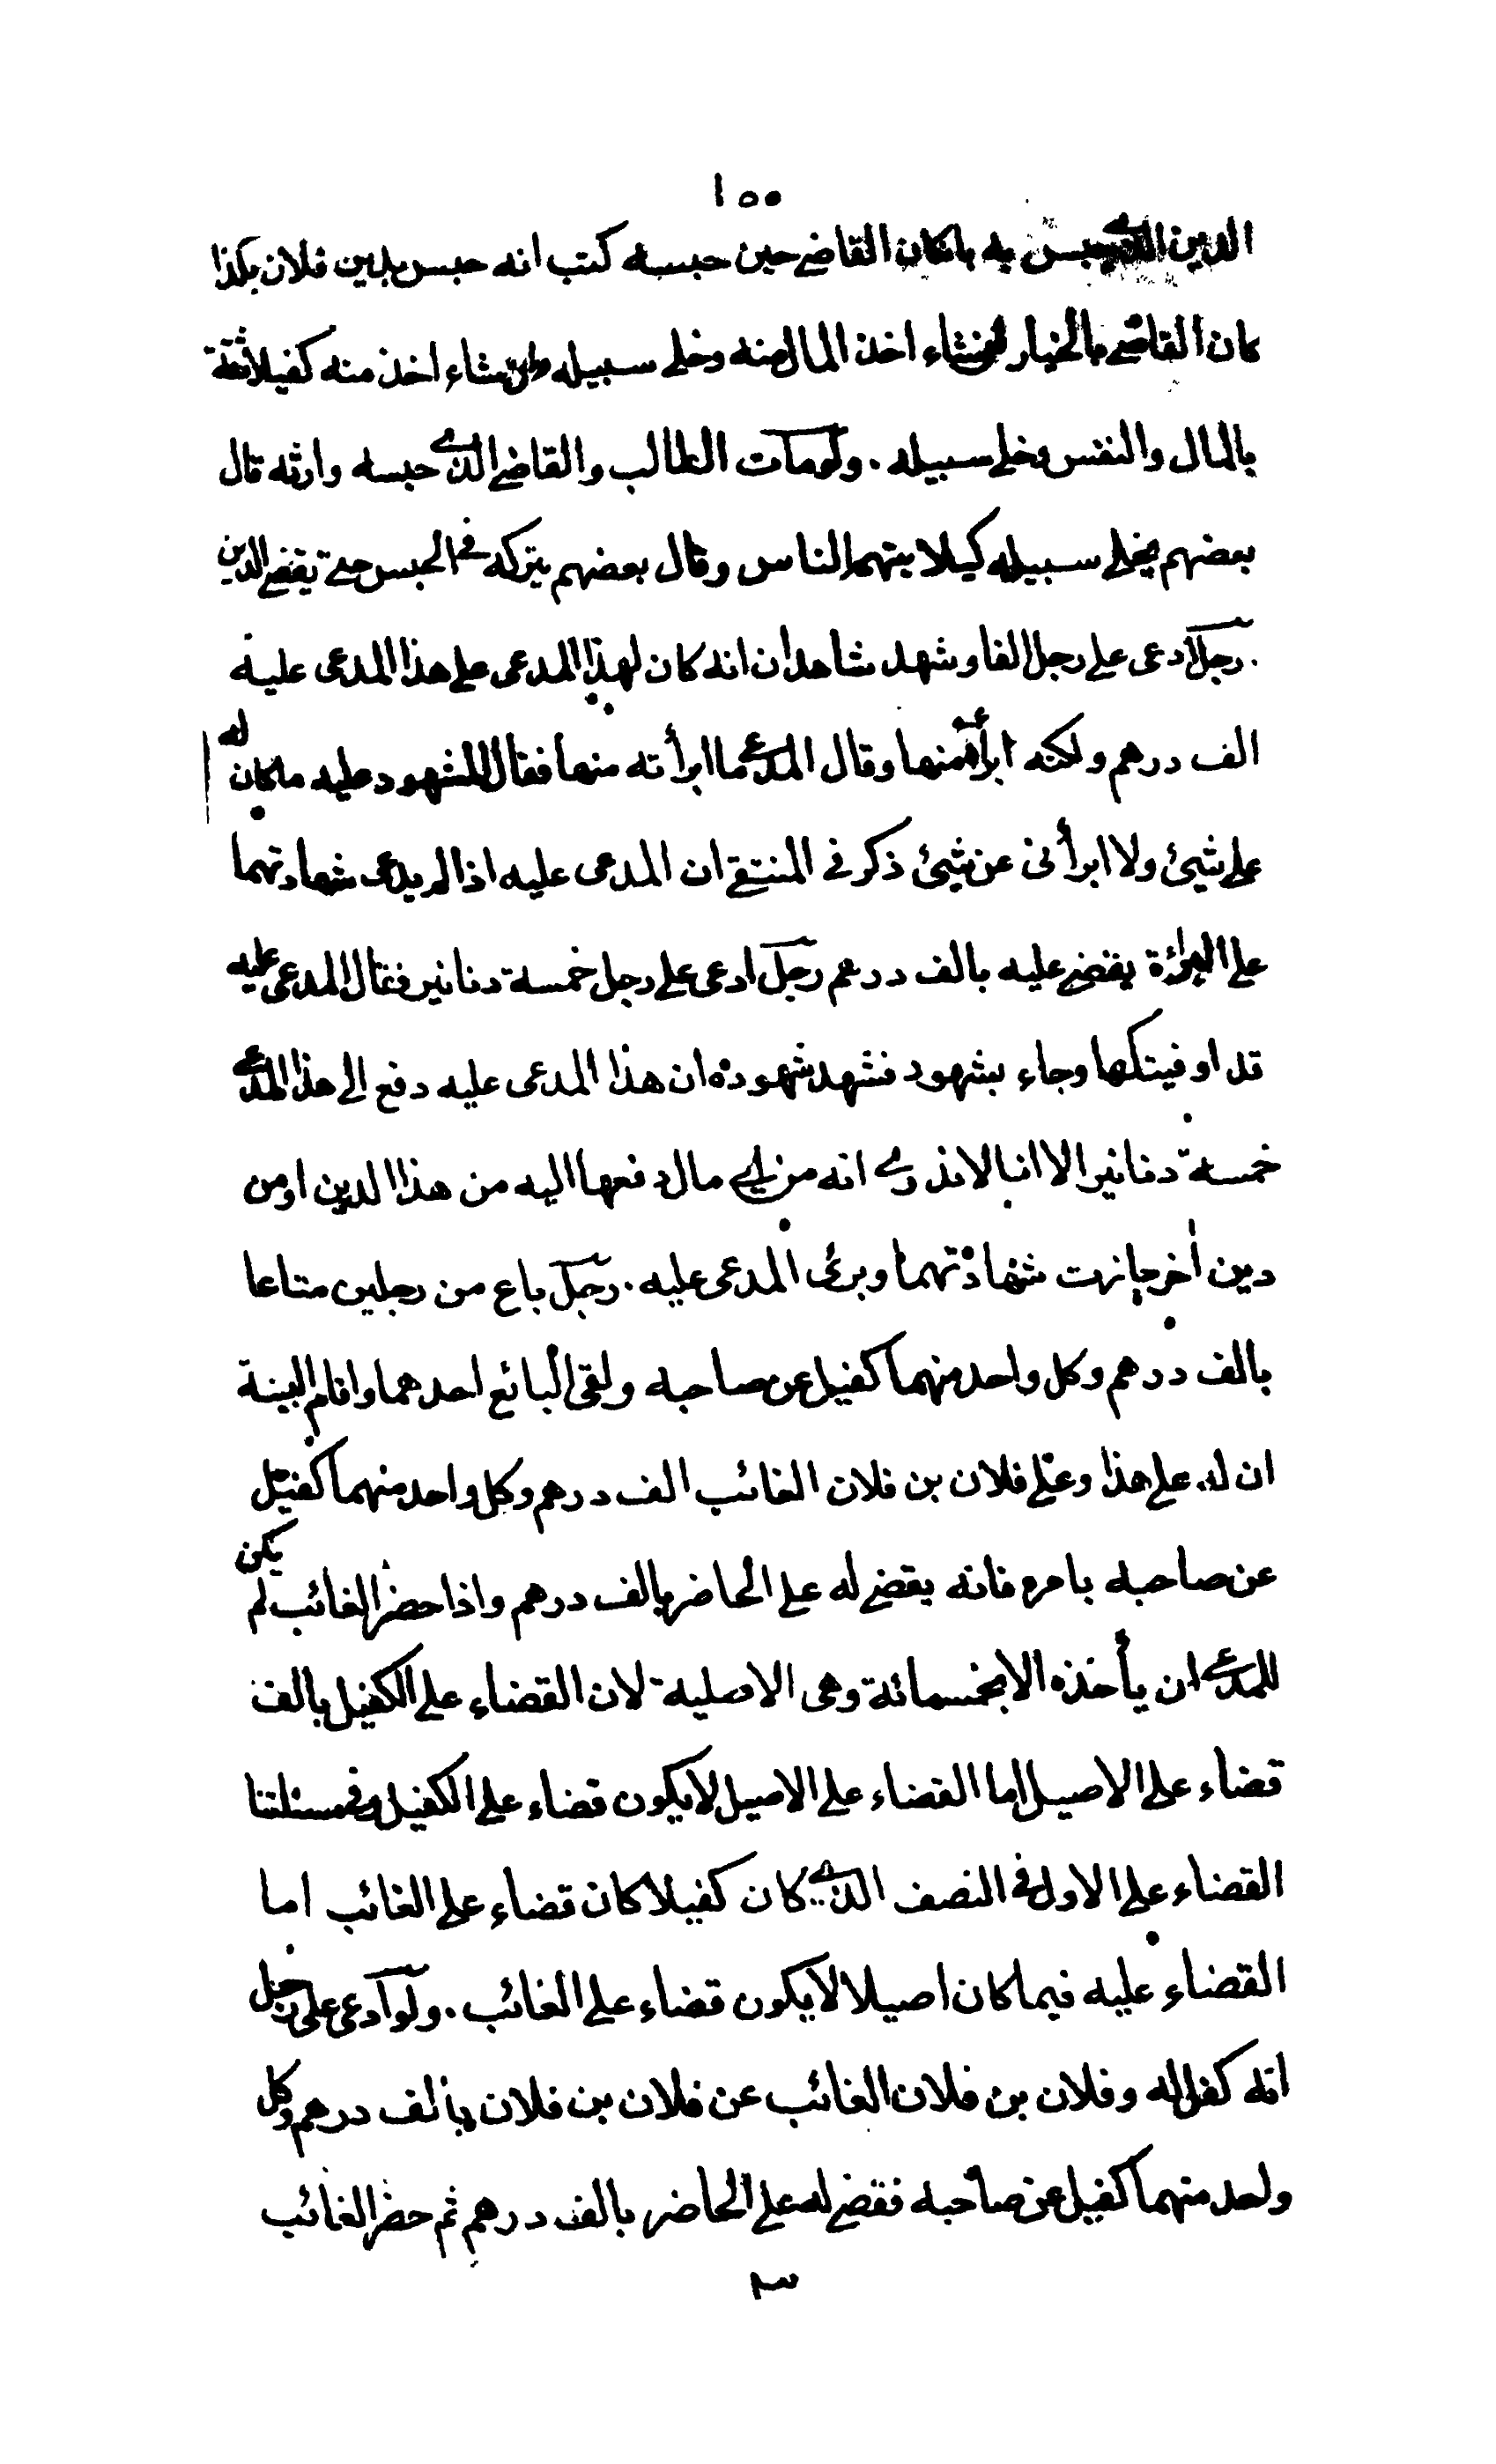 ١٥٥
الدين الذي حبس به بان كان القاضي حين حبسه كتب انه حبس بدين فلان بكذا
كان القاضي بالخيار ان شاء اخذ المال منه وخلى سبيله وان شاء اخذ منه كفيلا ثقة
بالمال والنفس وخلى سبيله . ولو مات الطالب والقاضي الذي حبسه وارثه قال
بعضهم يخلى سبيله كيلا يتهم الناس وقال بعضهم يتركه في الحبس حتى يقضي الدين
. رجل ادعى على رجل الفا وشهد شاهدان انه كان لهذا المدعى على هذا المدعى عليه
الف درهم ولكنه ابرأه منها وقال المدعي ما ابرأته منها فقال المشهود عليه ما كان له
على شيئ ولا ابرأنى عن شيئ ذكر فى المنتقى ان المدعى عليه اذا لم يدعى شهادتهما
على البرائة يقضى عليه بالف درهم رجل ادعى على رجل خمسة دنانير فقال المدعى عليه
قد اوفيتكها وجاء بشهود فشهد شهوده ان هذا المدعى عليه دفع الى هذا المدعي
خمسة دنانير الا انا لا ندري انه من اي مال دفعها اليه من هذا الدين او من
دين اخر جازت شهادتهما وبرئ المدعى عليه . رجل باع من رجلين متاعا
بالف درهم وكل واحد منهما كفيل عن صاحبه ولقى البائع احدهما واقام البينة
ان له على هذا وعلى فلان بن فلان الغائب الف درهم وكل واحد منهما كفيل
عن صاحبه بامره فانه يقضى له على الحاضر بالف درهم واذا حضر الغائب لم يكن
للمدعي ان يأخذه الا بخمسمائة وهى الاصلية لان القضاء على الكفيل بالف
قضاء على الاصيل اما القضاء على الاصيل لا يكون قضاء على الكفيل وفى مسئلتنا
القضاء على الاول فى النصف الذي كان كفيلا كان قضاء على الغائب اما
القضاء عليه فيما كان اصيلا لا يكون قضاء على الغائب . ولو ادعى على رجل
انه كفل له وفلان بن فلان الغائب عن فلان بن فلان بالف درهم وكل
واحد منهما كفيل عن صاحبه فقضى له على الحاضر بالف درهم ثم حضر الغائب